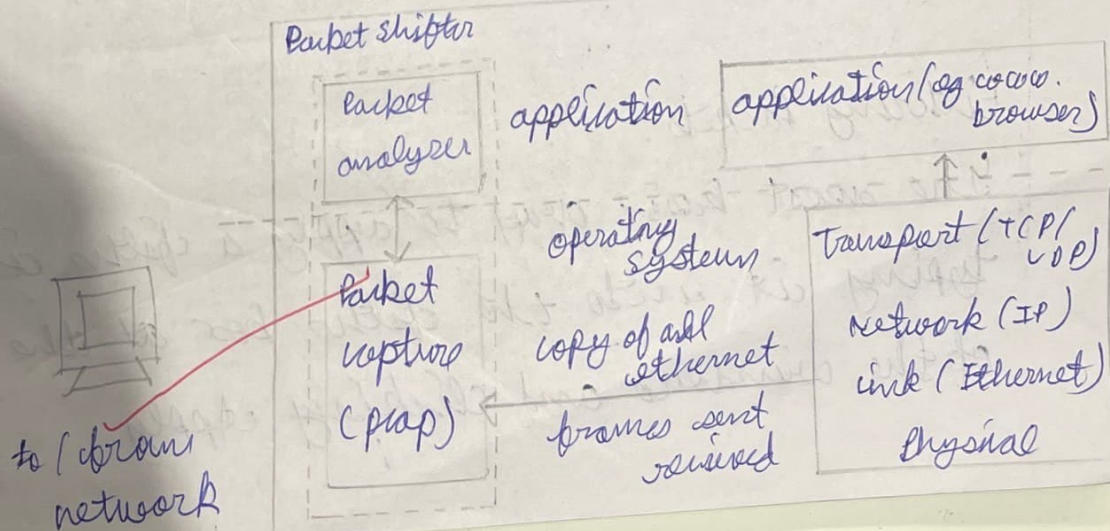 Packet shifter
Packet
analyzer
application
application (eg www.
browser)
Packet
capture
(pcap)
operating
system
copy of all
ethernet
frames sent
received
Transport (TCP/
UDP)
Network (IP)
Link (Ethernet)
Physical
to / from
network